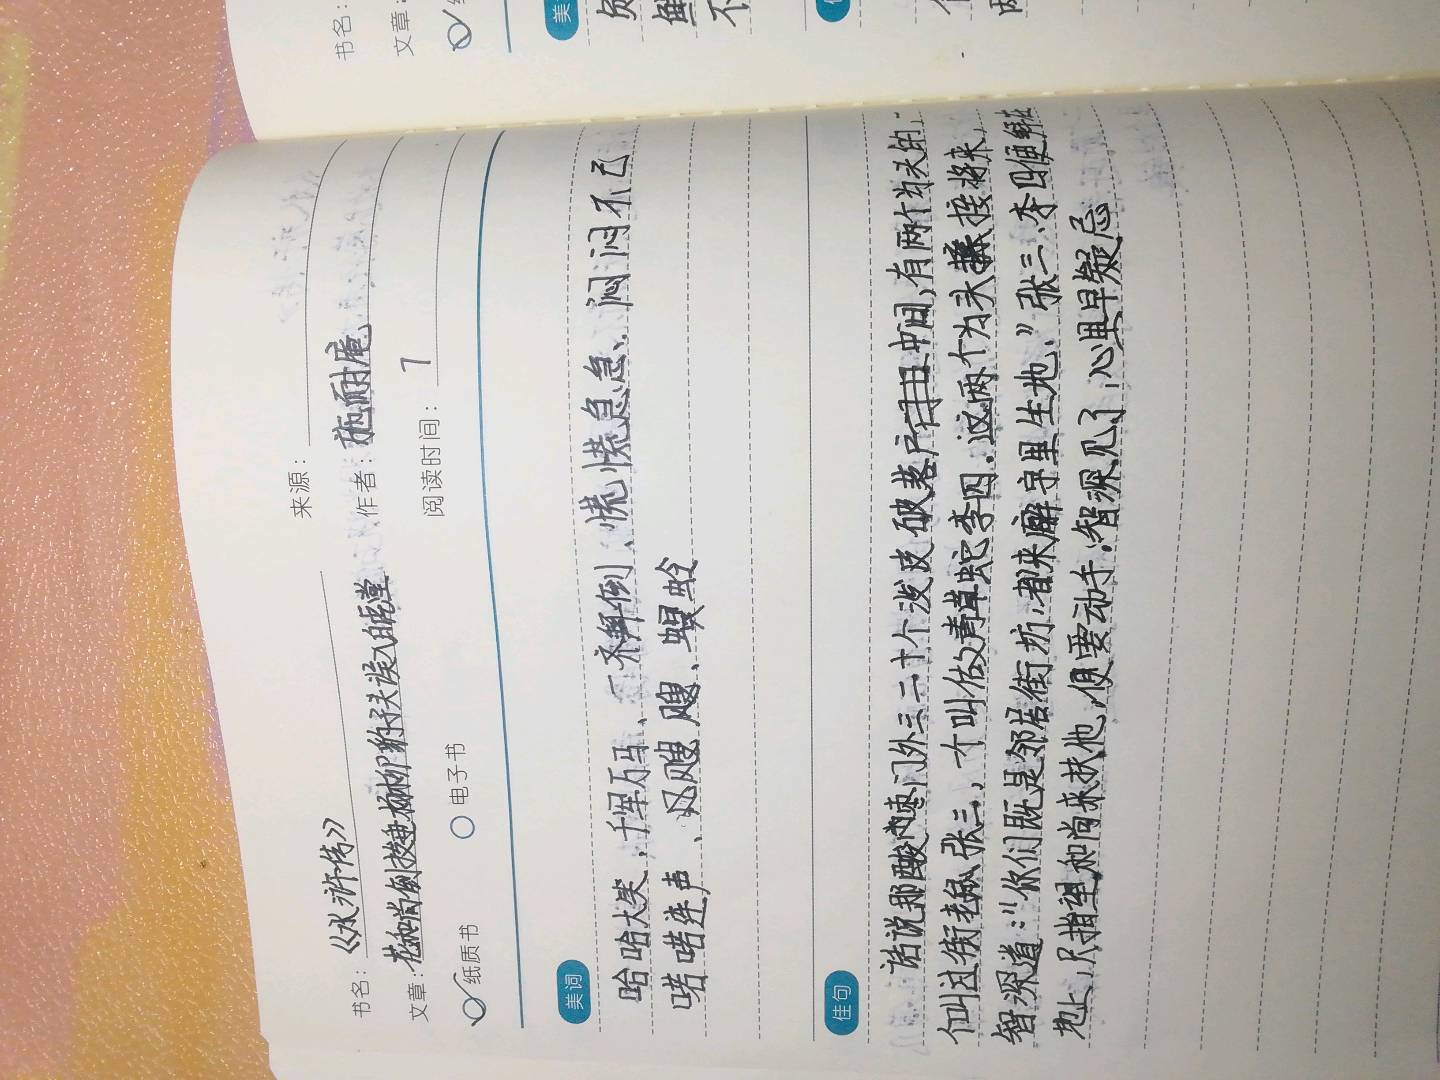 书名：
文章：
美
来源：
书名：《水浒传》
作者：施耐庵
文章：花和尚倒拔垂杨柳 豹子头误入白虎堂
阅读时间：7
纸质书 电子书
美词
哈哈大笑、千军万马、一齐倒、慌慌急急、闷闷不已
喏喏连声、风飕飕、螟蛉
佳句
话说那酸枣门外三二十个泼皮破落户中间，有两个为头的，
一个叫做青草蛇李四。这两个为头接将来，
智深道：“你们既是邻居街坊，都来廨宇里坐地。”张三、李四便
地上，只指望和尚来扶他，便要动手；智深见了，心里早疑忌